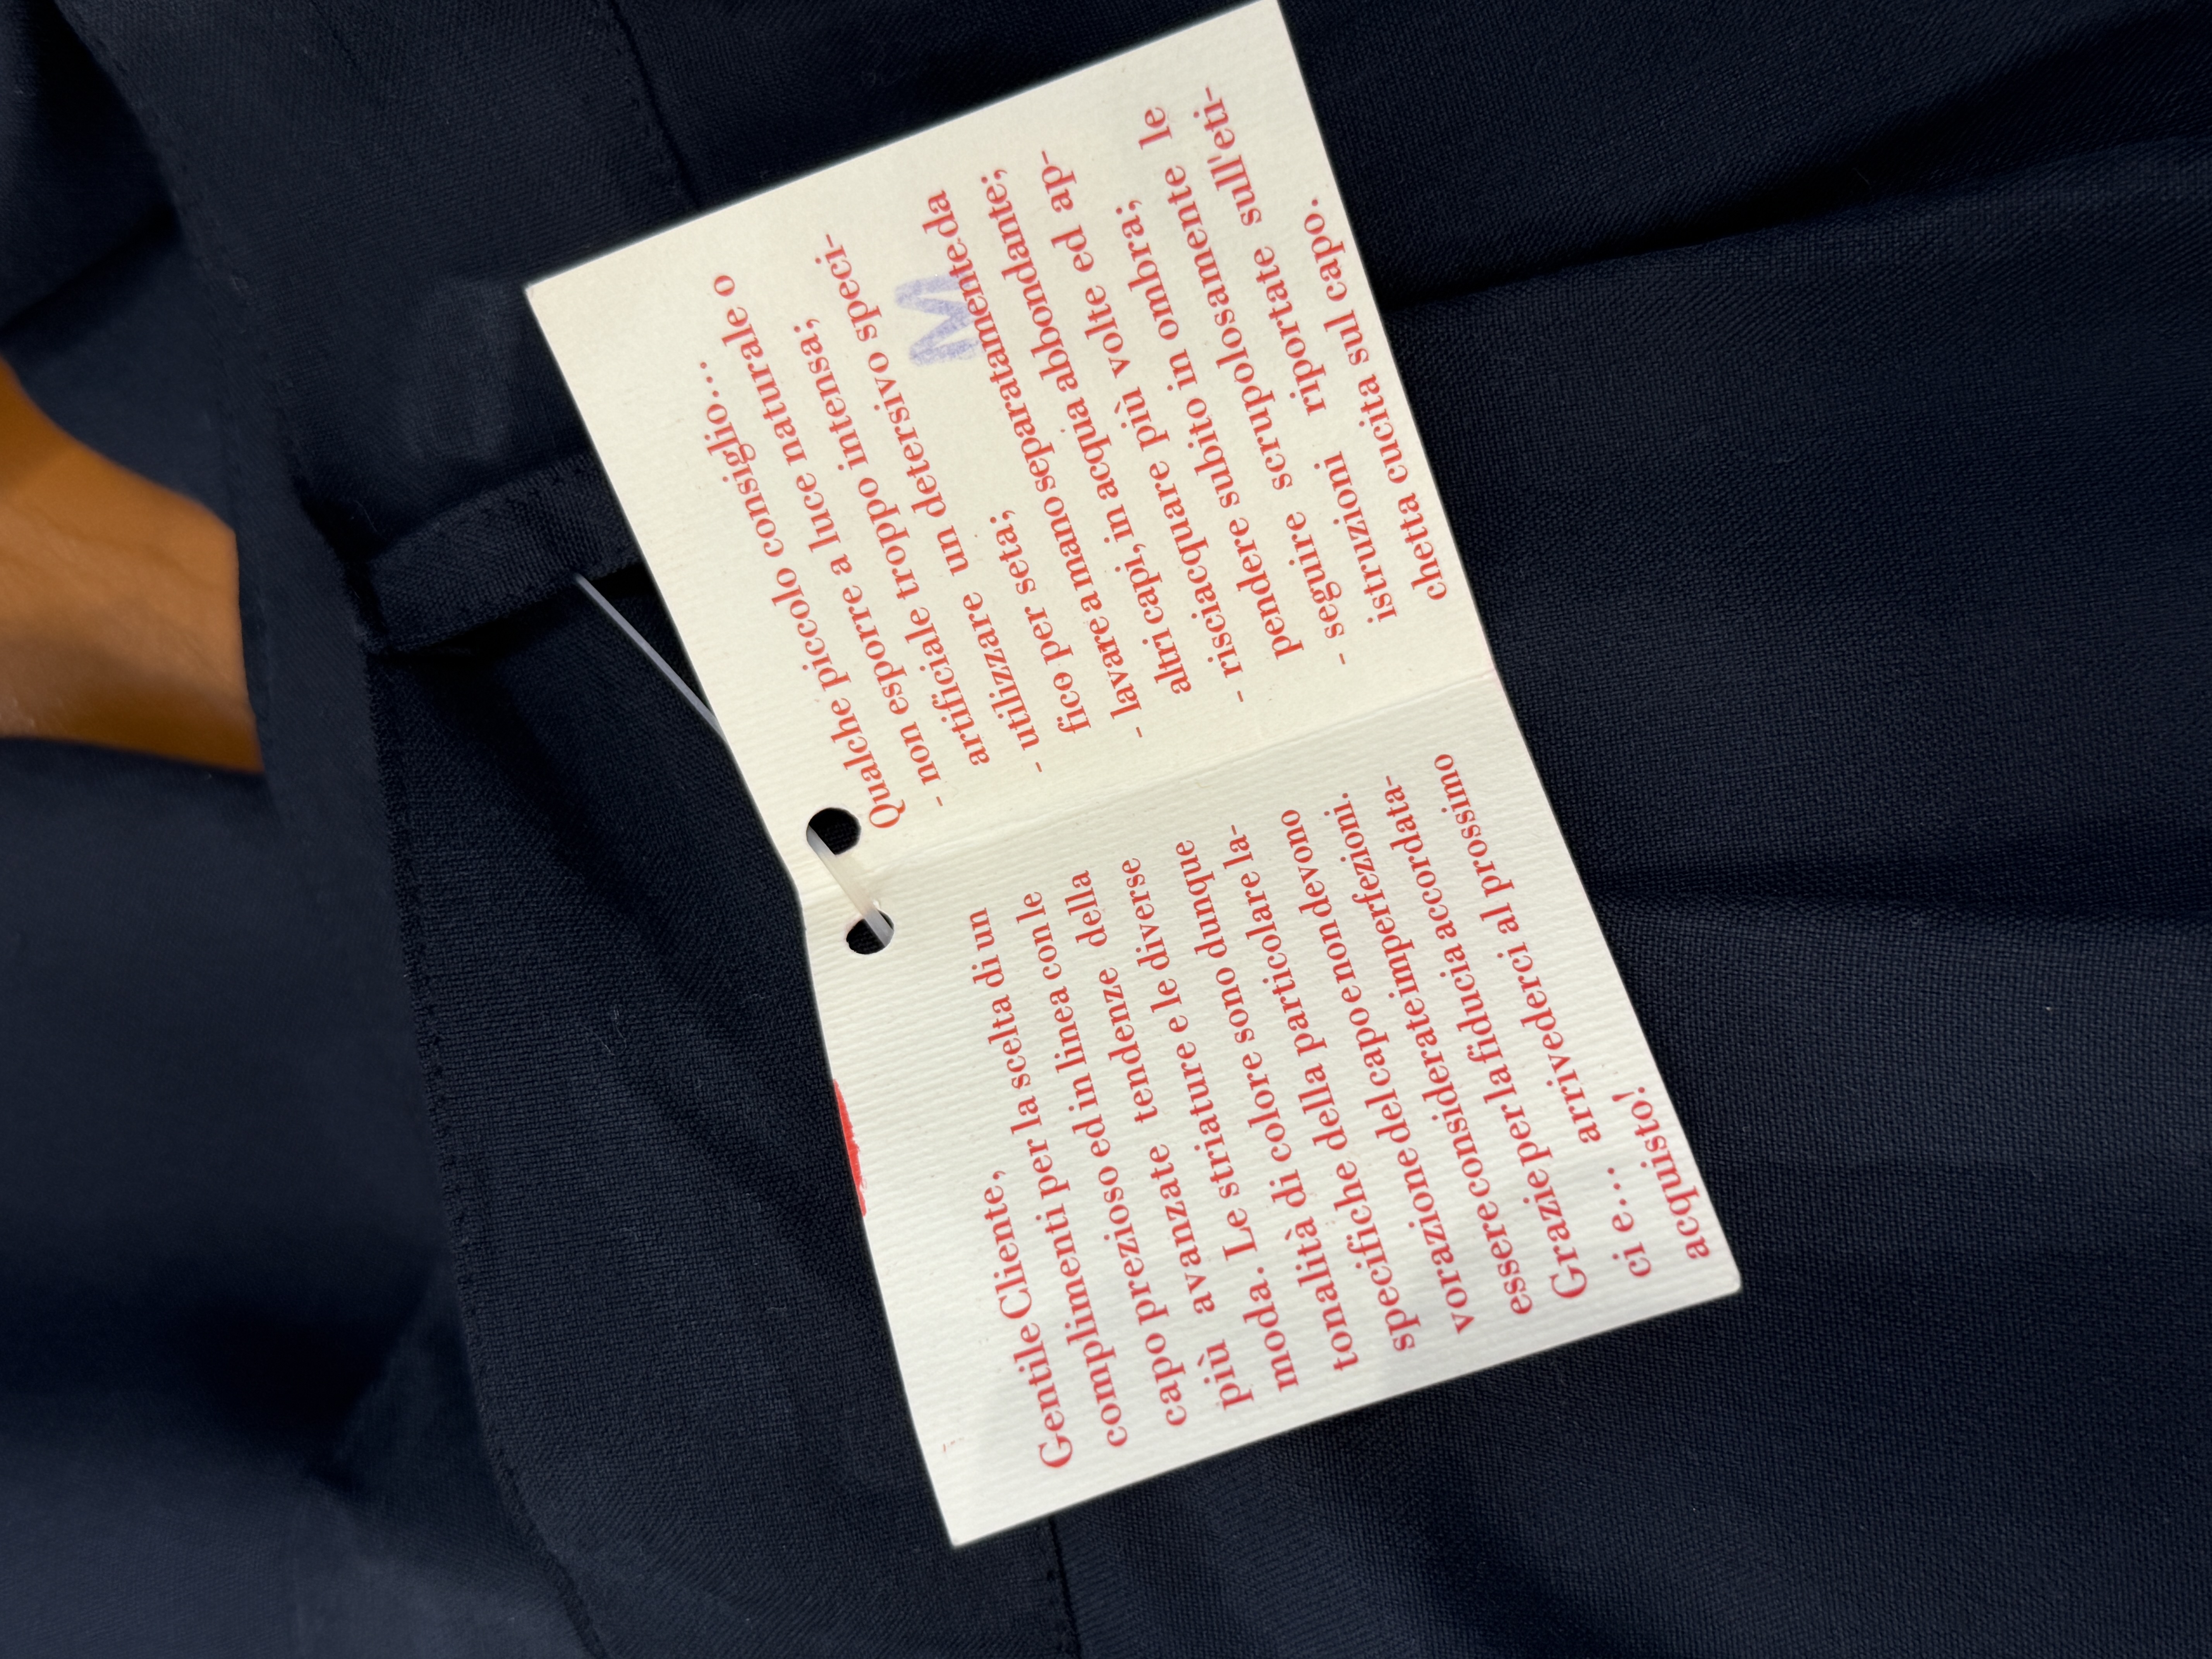 Gentile Cliente,
complimenti per la scelta di un
capo prezioso ed in linea con le
più avanzate tendenze della
moda. Le striature e le diverse
tonalità di colore sono dunque
specifiche della particolare la-
vorazione del capo e non devono
essere considerate imperfezioni.
Grazie per la fiducia accordata-
ci e... arrivederci al prossimo
acquisto!
Qualche piccolo consiglio...
- non esporre a luce naturale o
artificiale troppo intensa;
- utilizzare un detersivo speci-
fico per seta;
- lavare a mano separatamente da
altri capi, in acqua abbondante;
- risciacquare più volte ed ap-
pendere subito in ombra;
- seguire scrupolosamente le
istruzioni riportate sull'eti-
chetta cucita sul capo.
M